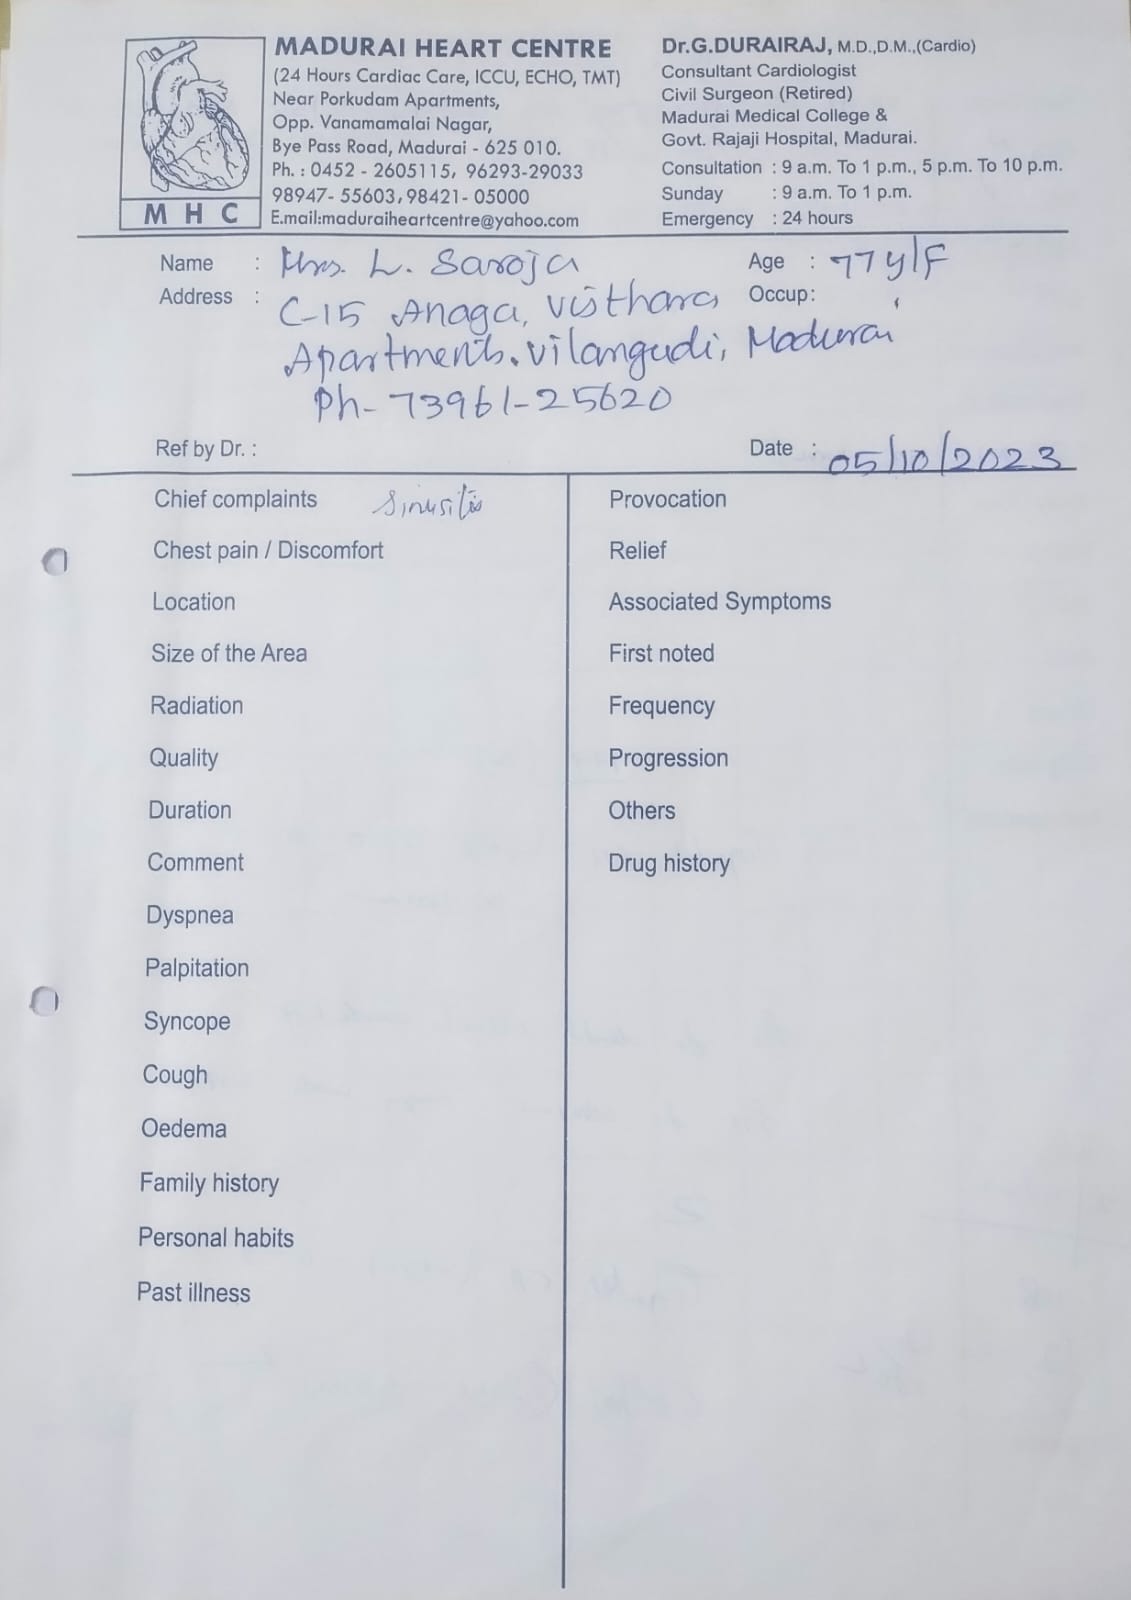 MADURAI HEART CENTRE
(24 Hours Cardiac Care, ICCU, ECHO, TMT)
Near Porkudam Apartments,
Opp. Vanamamalai Nagar,
Bye Pass Road, Madurai - 625 010.
Ph. : 0452 - 2605115, 96293-29033
98947- 55603,98421- 05000
E.mail:maduraiheartcentre@yahoo.com
M H C
Dr.G.DURAIRAJ, M.D.,D.M.,(Cardio)
Consultant Cardiologist
Civil Surgeon (Retired)
Madurai Medical College &
Govt. Rajaji Hospital, Madurai.
Consultation : 9 a.m. To 1 p.m., 5 p.m. To 10 p.m.
Sunday : 9 a.m. To 1 p.m.
Emergency : 24 hours
Name : Mrs. L. Saroja
Age : 77y/F
Address : C-15 Anaga, Visthara
Occup:
Apartments. Vilangudi, Madurai
Ph- 73961-25620
Ref by Dr. :
Date : 05/10/2023
Chief complaints Sinusitis
Chest pain / Discomfort
Location
Size of the Area
Radiation
Quality
Duration
Comment
Dyspnea
Palpitation
Syncope
Cough
Oedema
Family history
Personal habits
Past illness
Provocation
Relief
Associated Symptoms
First noted
Frequency
Progression
Others
Drug history